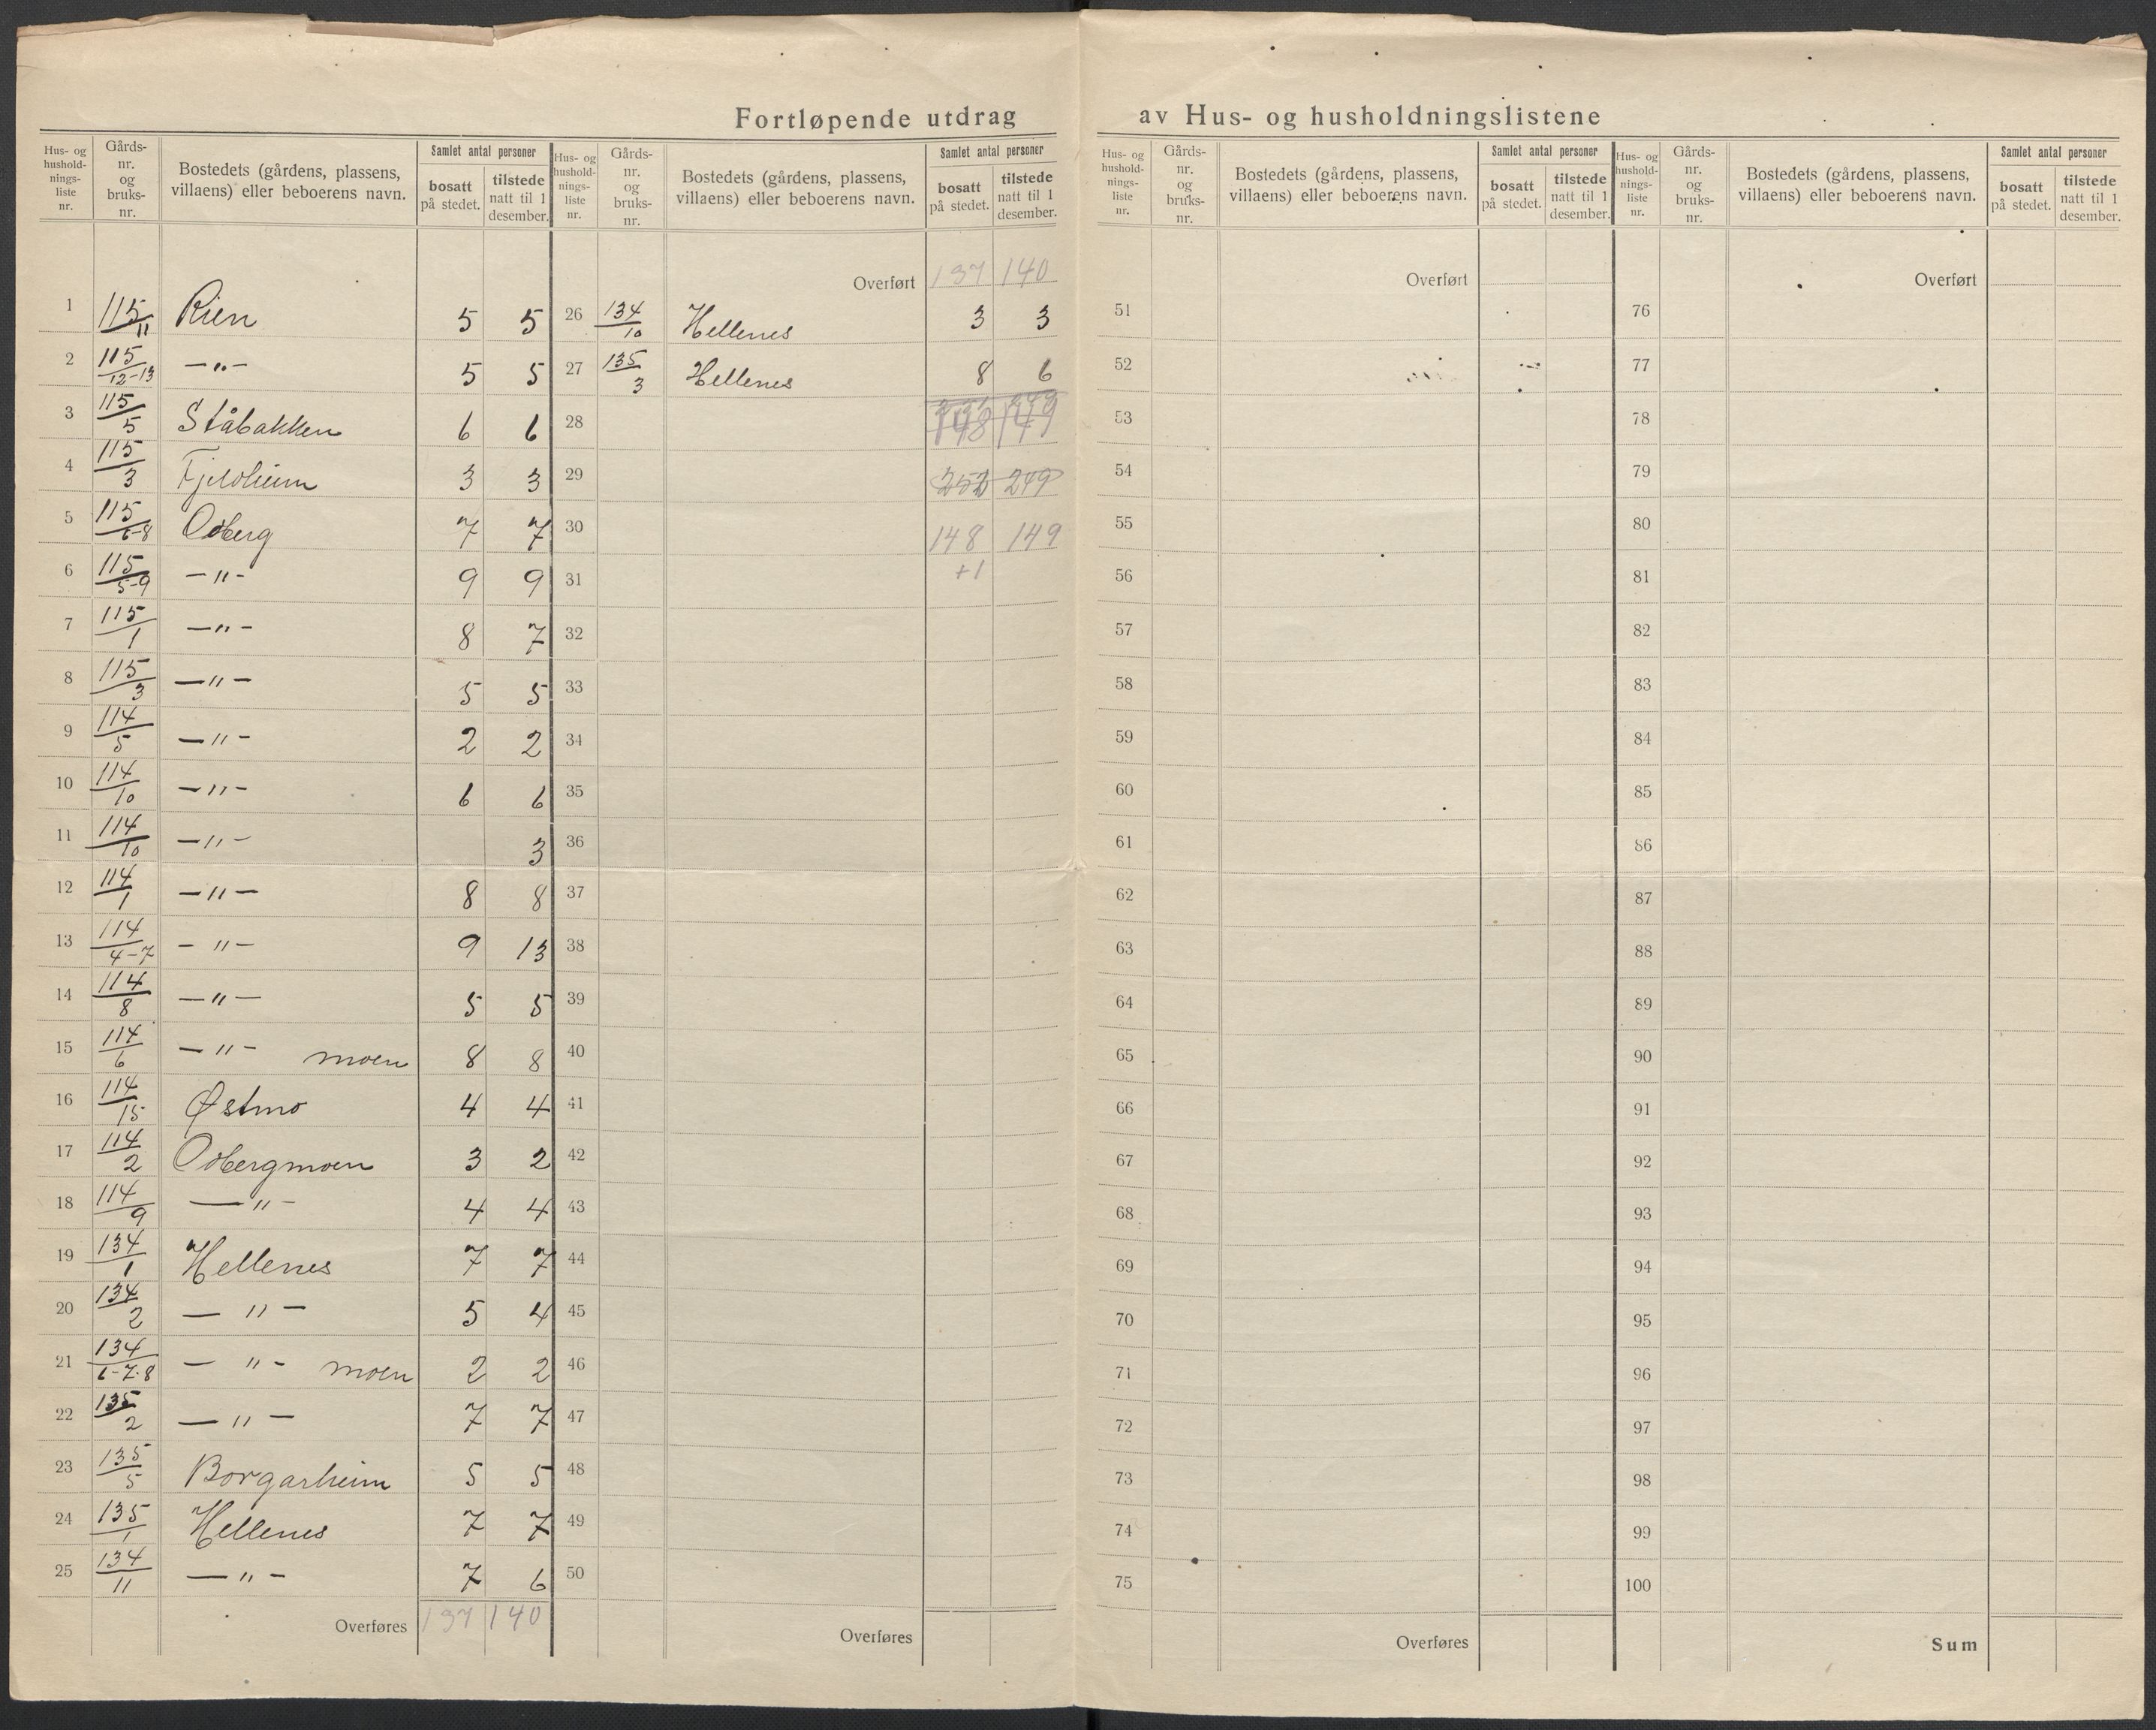 Fortløpende utdrag av Hus- og husholdningslistene
Hus- og husholdningsliste nr. | Gårds-nr. og bruks-nr. | Bostedets (gårdens, plassens, villaens) eller beboerens navn. | Samlet antal personer | bosatt på stedet. | tilstede natt til 1 desember.
1 115/11 Rien 5 5
2 115/12-13 —"— 5 5
3 115/5 Ståbakken 6 6
4 115/3 Fjeldheim 3 3
5 115/6-8 Odberg 7 7
6 115/5-9 —"— 9 9
7 115/1 —"— 8 7
8 115/3 —"— 5 5
9 114/5 —"— 2 2
10 114/10 —"— 6 6
11 114/10 —"— 3
12 114/1 —"— 8 8
13 114/4-7 —"— 9 13
14 114/8 —"— 5 5
15 114/6 —"— moen 8 8
16 114/15 Østmo 4 4
17 114/2 Odbergmoen 3 2
18 114/9 —"— 4 4
19 134/1 Hellenes 7 7
20 134/2 —"— 5 4
21 134/6-7-8 —"— moen 2 2
22 135/2 —"— 7 7
23 135/5 Borgarheim 5 5
24 135/1 Hellenes 7 7
25 134/11 —"— 7 6
Overføres 137 140
Hus- og husholdningsliste nr. | Gårds-nr. og bruks-nr. | Bostedets (gårdens, plassens, villaens) eller beboerens navn. | Samlet antal personer | bosatt på stedet. | tilstede natt til 1 desember.
Overført 137 140
26 134/10 Hellenes 3 3
27 135/3 Hellenes 8 6
28 148 149
29 252 249
30 148 149
31 +1
32
33
34
35
36
37
38
39
40
41
42
43
44
45
46
47
48
49
50
Overføres
Hus- og husholdningsliste nr. | Gårds-nr. og bruks-nr. | Bostedets (gårdens, plassens, villaens) eller beboerens navn. | Samlet antal personer | bosatt på stedet. | tilstede natt til 1 desember.
Overført
51
52
53
54
55
56
57
58
59
60
61
62
63
64
65
66
67
68
69
70
71
72
73
74
75
Overføres
Hus- og husholdningsliste nr. | Gårds-nr. og bruks-nr. | Bostedets (gårdens, plassens, villaens) eller beboerens navn. | Samlet antal personer | bosatt på stedet. | tilstede natt til 1 desember.
Overført
76
77
78
79
80
81
82
83
84
85
86
87
88
89
90
91
92
93
94
95
96
97
98
99
100
Sum